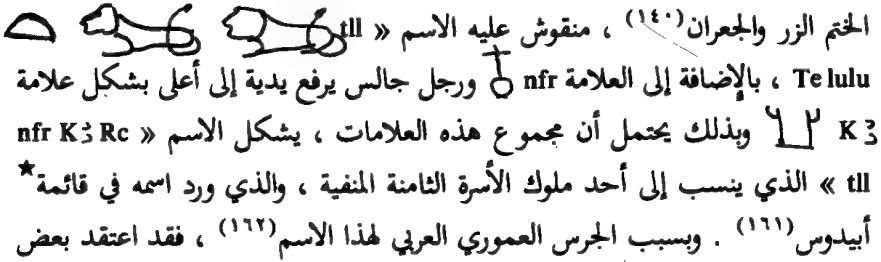 الختم الزر والجعران(١٤٠) ، منقوش عليه الاسم « tll
Te lulu ، بالإضافة إلى العلامة nfr ورجل جالس يرفع يدية إلى أعلى بشكل علامة
K3 وبذلك يحتمل أن مجموع هذه العلامات ، يشكل الاسم « nfr K3 Rc
tll » الذي ينسب إلى أحد ملوك الأسرة الثامنة المنفية ، والذي ورد اسمه في قائمة★
أبيدوس(١٦١) . وبسبب الجرس العموري العربي لهذا الاسم(١٦٢) ، فقد اعتقد بعض